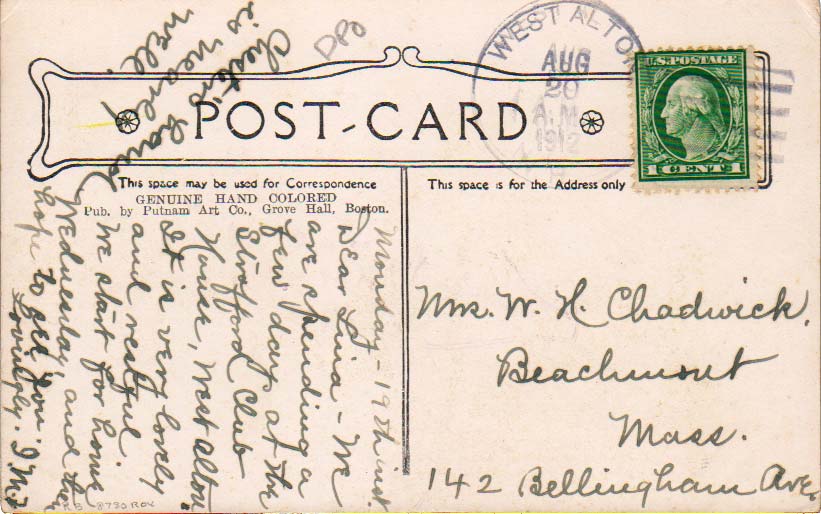 Chester's hand
is nearly
well.
DPO
WEST ALTON
AUG
20
A.M.
1912
U.S. POSTAGE
1 CENT 1
POST-CARD
This space may be used for Correspondence
GENUINE HAND COLORED
Pub. by Putnam Art Co., Grove Hall, Boston.
This space is for the Address only
Monday - 19th inst.
Dear Lina - We
are spending a
few days at the
Strafford Club
House, West Alton.
It is very lovely
and restful.
We start for home
Wednesday, and then
hope to see you.
Lovingly. I.M.
Mrs. W. H. Chadwick,
Beachmont
Mass.
142 Bellingham Ave.